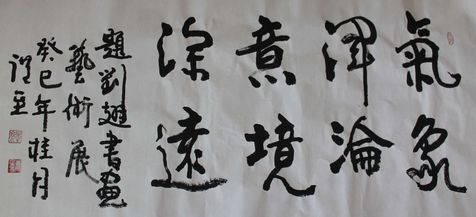 氣象
渾淪
意境
深遠
題劉書畫
藝術展
癸巳年桂月